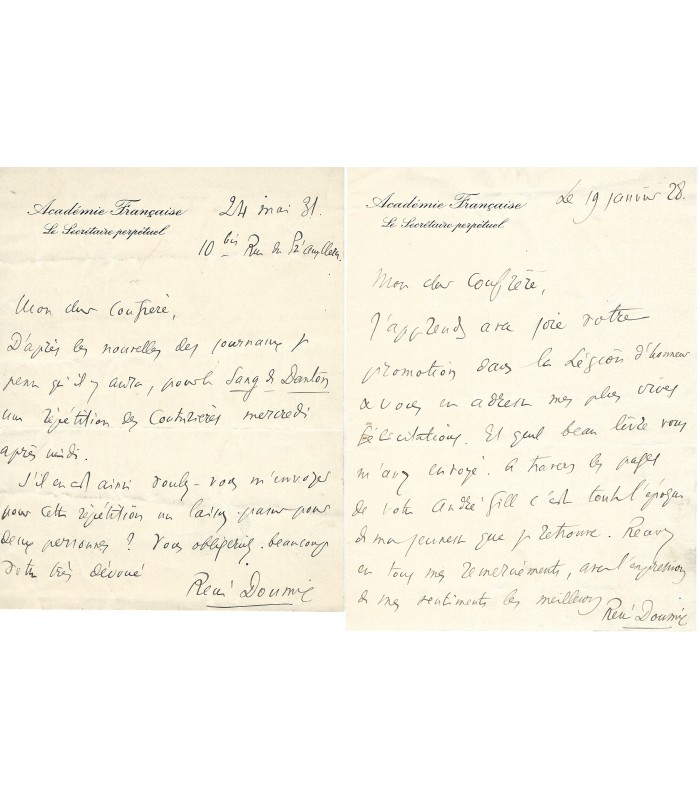 Académie Française
Le Secrétaire perpétuel
24 mai 31.
10 bis Rue du Pré aux Clercs
Mon cher Confrère,
D'après les nouvelles des journaux je
pense qu'il y aura, pour le Sang de Danton
une répétition des Couturières mercredi
après midi.
S'il en est ainsi voulez-vous m'envoyer
pour cette répétition un laisser-passer pour
deux personnes ? Vous obligeriez beaucoup
votre très dévoué
René Doumic
Académie Française
Le Secrétaire perpétuel
Le 19 janvier 28.
Mon cher Confrère,
J'apprends avec joie votre
promotion dans la Légion d'honneur
& vous en adresse mes plus vives
félicitations. Et quel beau livre vous
m'avez envoyé. A travers les pages
de votre André Gill c'est toute l'époque
de ma jeunesse que je retrouve. Recevez
en tous mes remerciements, avec l'expression
de mes sentiments les meilleurs
René Doumic